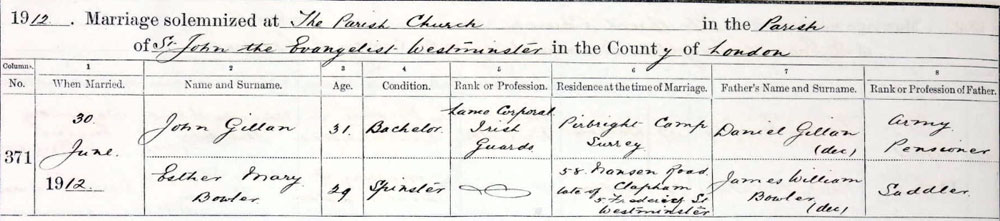 1912. Marriage solemnized at The Parish Church in the Parish
of St. John the Evangelist Westminster in the County of London
Columns. 1 2 3 4 5 6 7 8
No. When Married. Name and Surname. Age. Condition. Rank or Profession. Residence at the time of Marriage. Father's Name and Surname. Rank or Profession of Father.
371
30.
June.
1912
John Gillan
31.
Bachelor
Lance Corporal
Irish
Guards
Pirbright Camp
Surrey
Daniel Gillan
(dec)
Army
Pensioner
Esther Mary
Bowler
29
Spinster
58 Nansen Road
Clapham
late of 5 Frederick St
Westminster
James William
Bowler
(dec)
Saddler